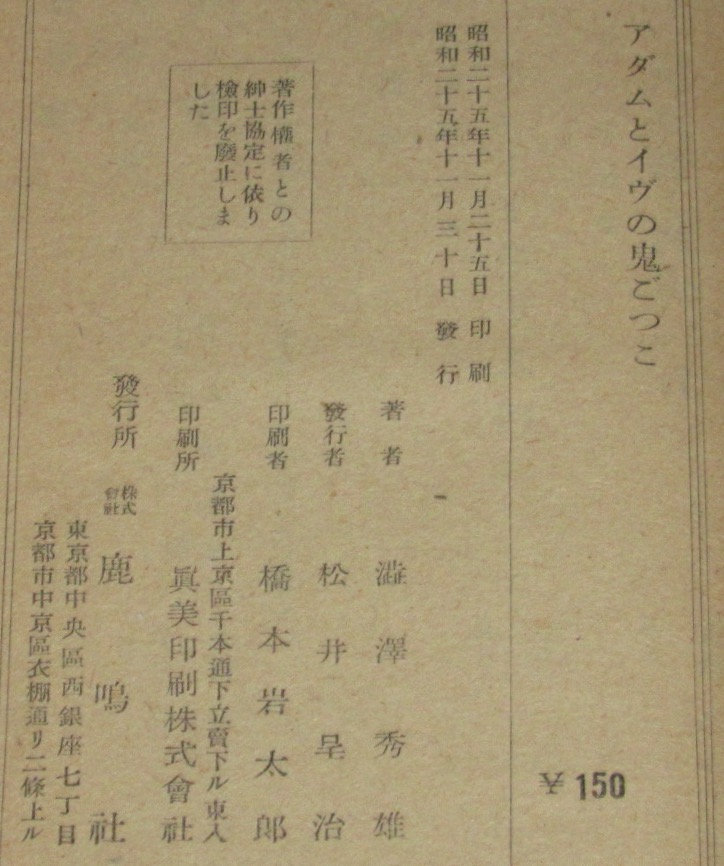 アダムとイヴの鬼ごつこ
¥ 150
昭和二十五年十一月二十五日 印刷
昭和二十五年十一月三十日 發行
著作權者との
紳士協定に依り
檢印を廢止しま
した
著者 澁澤秀雄
發行者 松井呈治
印刷者 橋本岩太郎
京都市上京區千本通下立賣下ル東入
印刷所 眞美印刷株式會社
發行所 株式會社 鹿鳴社
東京都中央區西銀座七丁目
京都市中京區衣棚通リ二條上ル